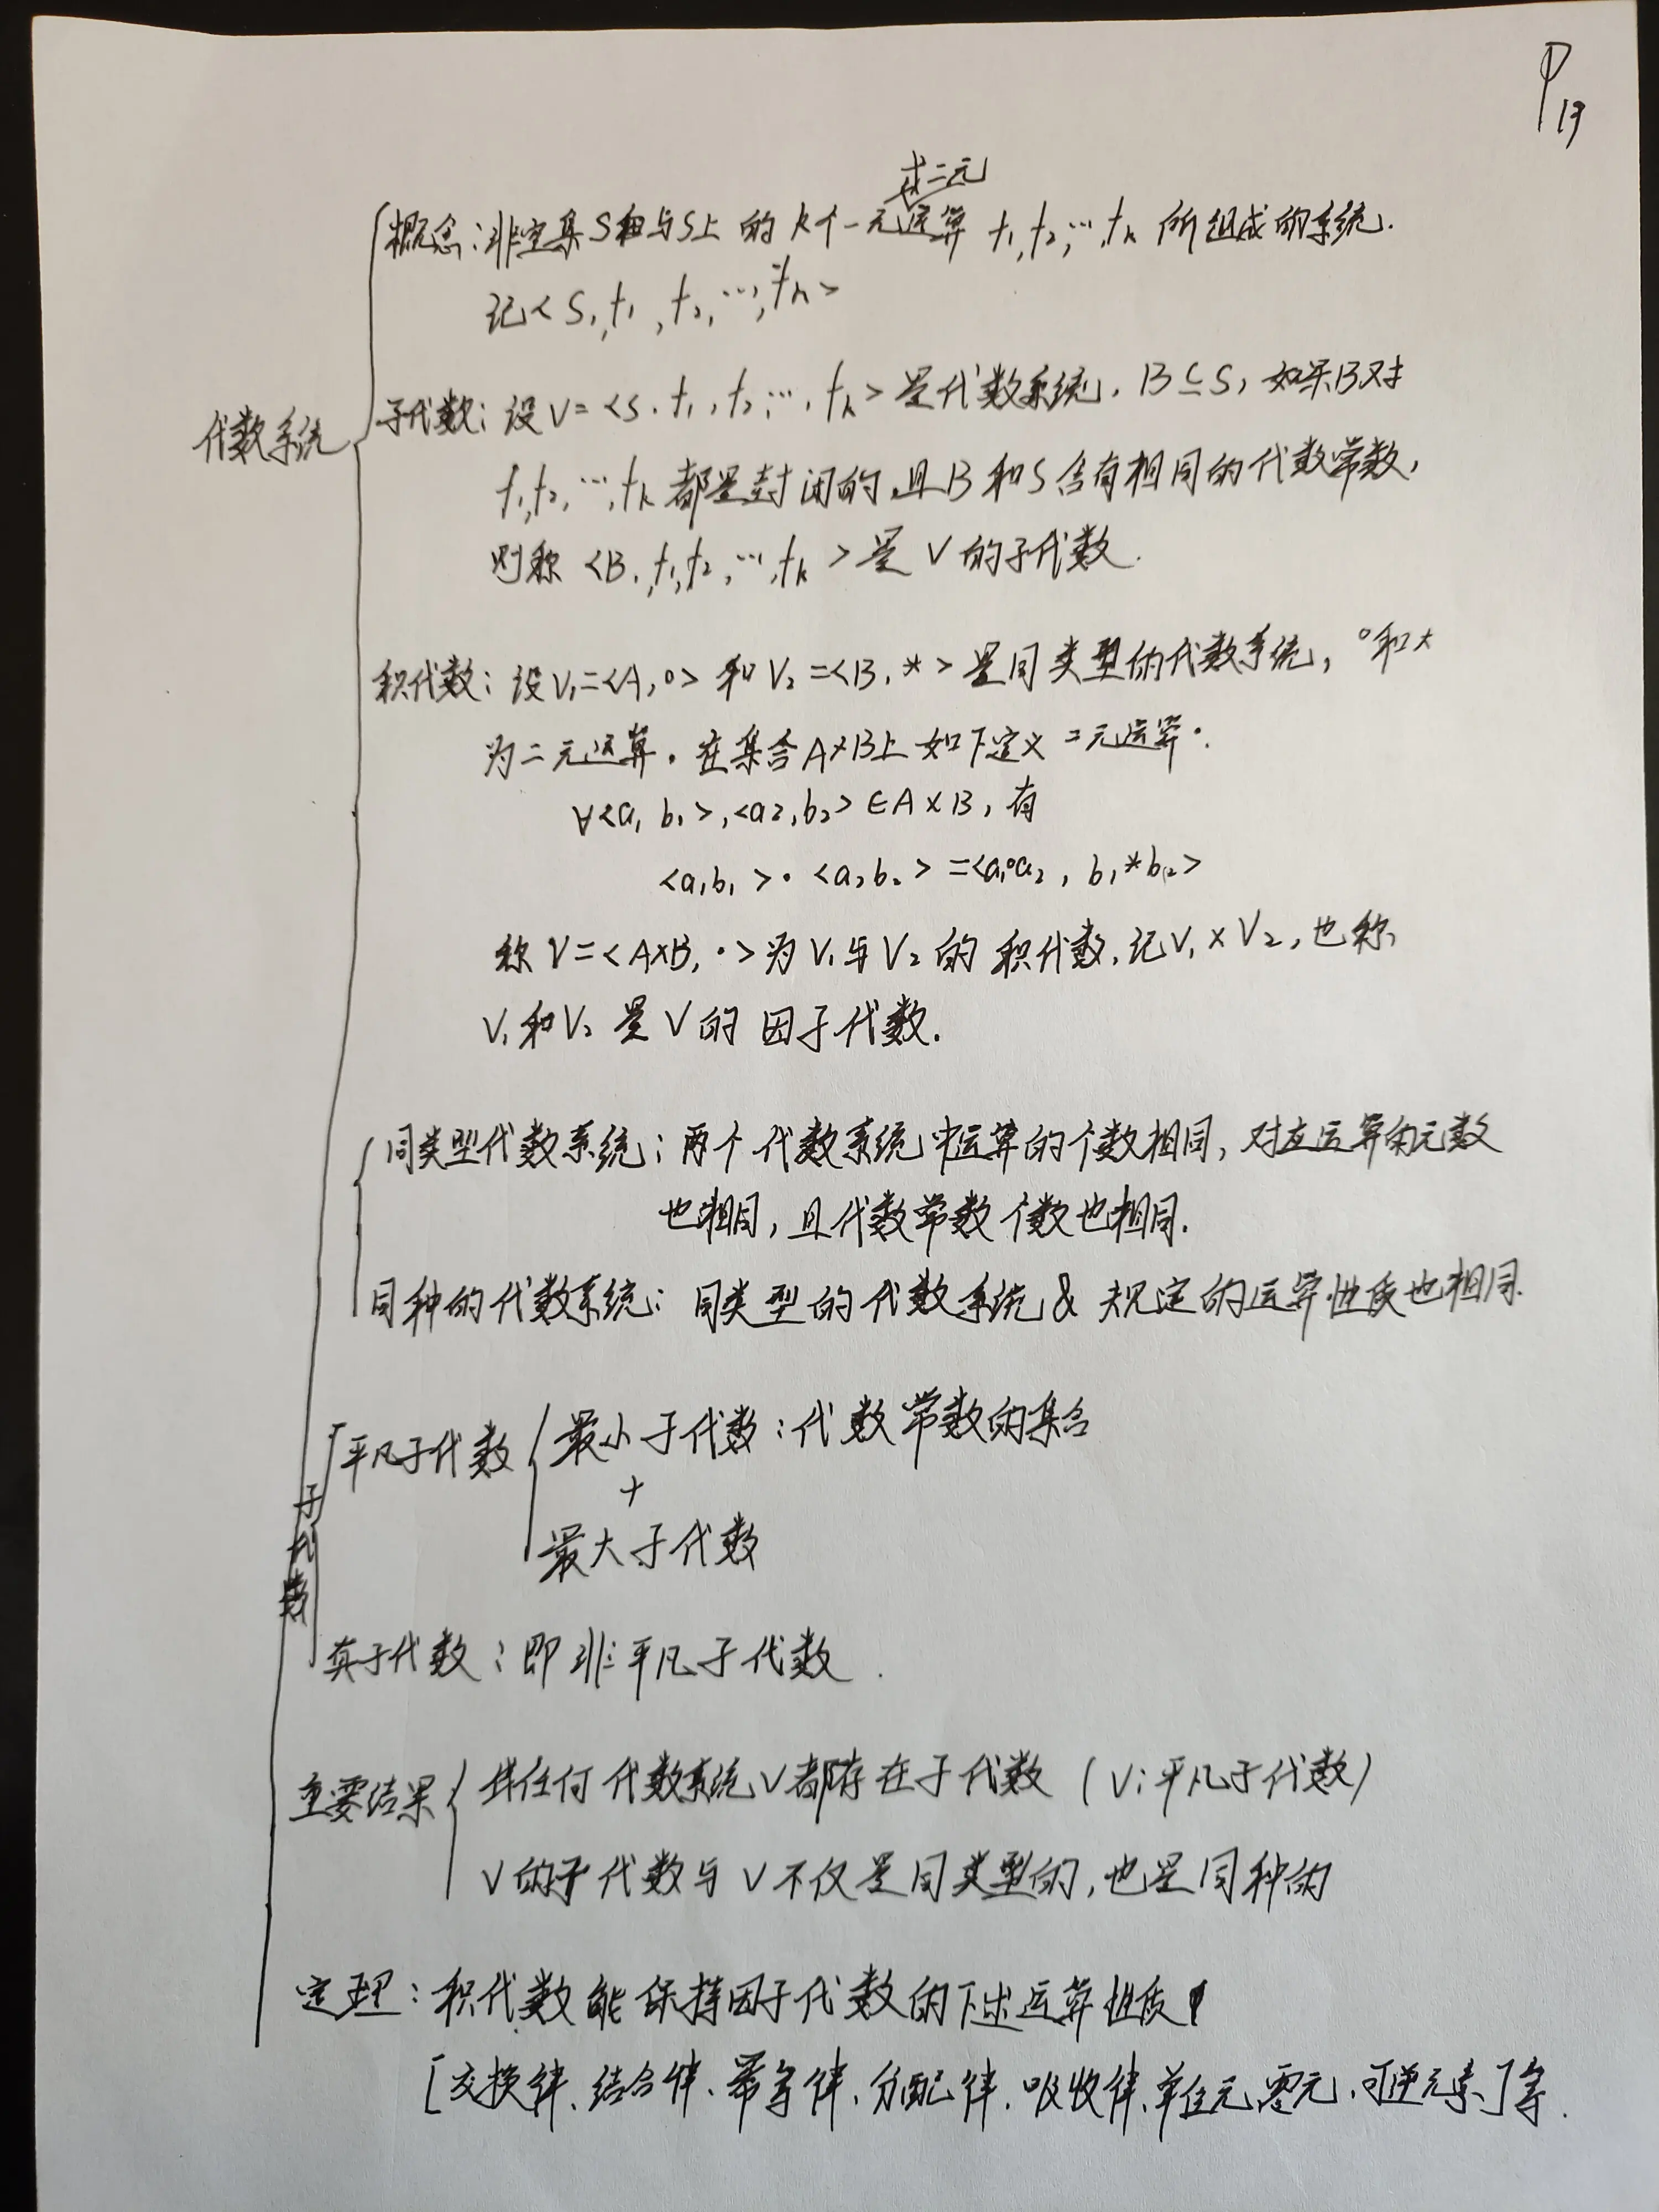 P13
或二元
概念：非空集S和与S上的k个一元运算 f1,f2,…,fk 所组成的系统.
记<S,f1,f2,…,fk>
代数系统
子代数：设V=<S,f1,f2,…,fk>是代数系统，B⊆S，如果B对
f1,f2,…,fk都是封闭的,且B和S含有相同的代数常数，
则称<B,f1,f2,…,fk>是V的子代数.
积代数：设V1=<A,∘>和V2=<B,*>是同类型的代数系统，∘和*
为二元运算。在集合A×B上如下定义二元运算·.
∀<a1 b1>,<a2,b2>∈A×B，有
<a1b1>·<a2b2>=<a1∘a2, b1*b2>
称V=<A×B,·>为V1与V2的积代数,记V1×V2,也称
V1和V2是V的因子代数.
同类型代数系统：两个代数系统中运算的个数相同，对应运算的元数
也相同，且代数常数个数也相同.
同种的代数系统：同类型的代数系统 & 规定的运算性质也相同.
平凡子代数 最小子代数：代数常数的集合
+
子代数
最大子代数
真子代数：即非平凡子代数.
重要结果 任何代数系统V都存在子代数（V：平凡子代数）
V的子代数与V不仅是同类型的,也是同种的
定理：积代数能保持因子代数的下述运算性质
[交换律、结合律、幂等律、分配律、吸收律、单位元、零元、可逆元素]等.